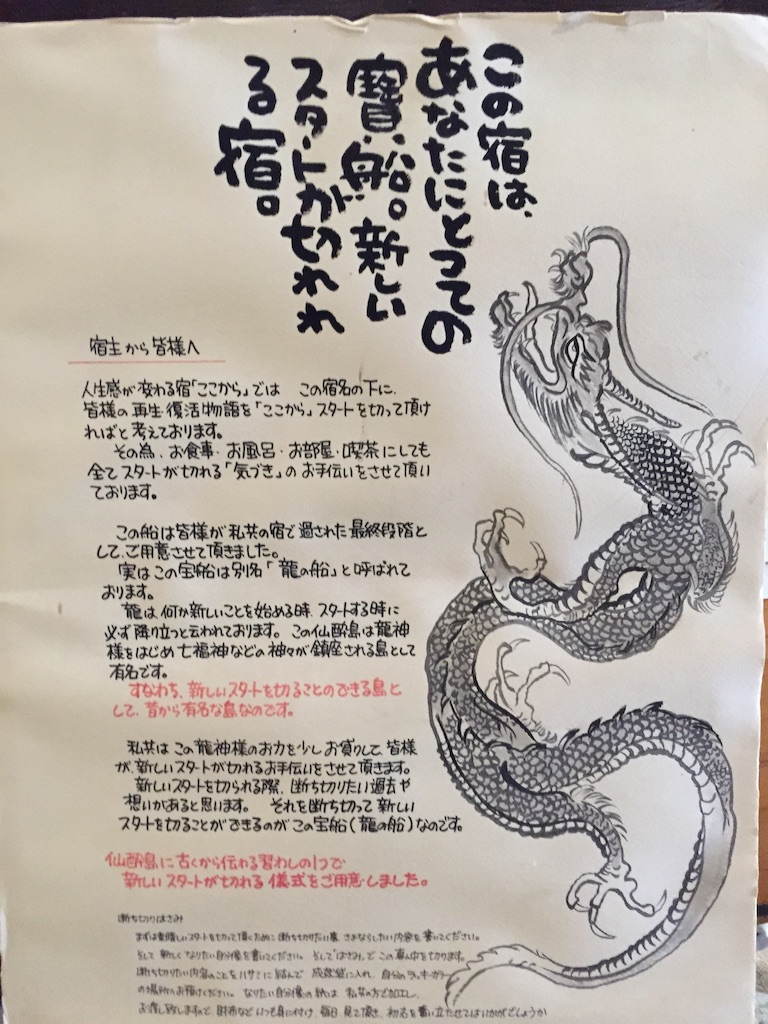 この宿は、
あなたにとっての
寶船。新しい
スタートが切れれ
る宿。
宿主から皆様へ
人生感が変わる宿「ここから」では この宿名の下に、
皆様の再生・復活物語を「ここから」スタートを切って頂け
ればと考えております。
その為、お食事・お風呂・お部屋・喫茶にしても
全てスタートが切れる「気づき」のお手伝いをさせて頂い
ております。
この船は皆様が私共の宿で過された最終段階と
して、ご用意させて頂きました。
実はこの宝船は別名「龍の船」と呼ばれて
おります。
龍は、何か新しいことを始める時、スタートする時に
必ず降り立つと云われております。この仙酔島は龍神
様をはじめ七福神などの神々が鎮座される島として
有名です。
すなわち、新しいスタートを切ることのできる島と
して、昔から有名な島なのです。
私共はこの龍神様のお力を少しお貸りして、皆様
が、新しいスタートが切れるお手伝いをさせて頂きます。
新しいスタートを切られる際、断ち切りたい過去や
想いがあると思います。 それを断ち切って新しい
スタートを切ることができるのがこの宝船(龍の船)なのです。
仙酔島に古くから伝わる習わしの1つで
新しいスタートが切れる儀式をご用意しました。
断ち切りはさみ
まずは素晴しいスタートを切って頂くために断ち切りたい事、さよならしたい内容を書いてください。
そして新しくなりたい自分像を書いてください。そして"はさみ"でこの真ん中を切ります。
断ち切りたい内容のことをハサミに結んで 成就袋に入れ、自分のラッキーカラー
の場所へお預けください。なりたい自分像の紙は 私共の方で加工し、
お渡し致しますので、財布などいつも身に付け 毎日 見て頂き、初志を奮い立たせてはいかがでしょうか